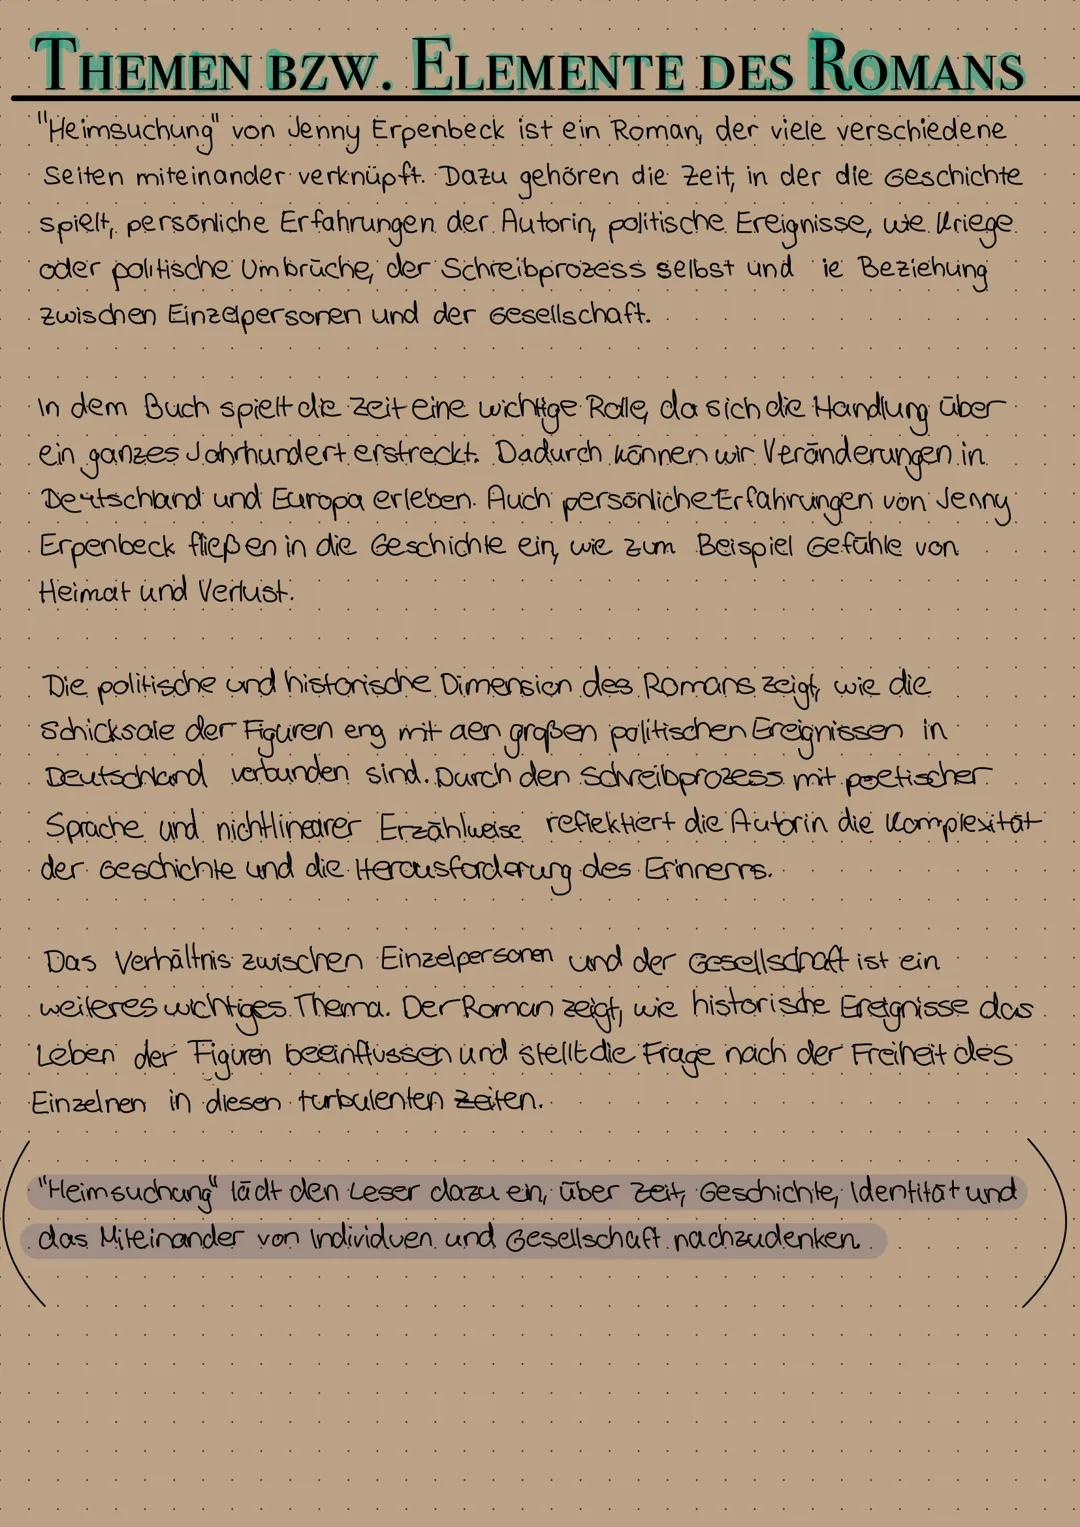 THEMEN BZW. ELEMENTE DES ROMANS
"Heimsuchung" von Jenny Erpenbeck ist ein Roman, der viele verschiedene
Seiten miteinander verknüpft. Dazu gehören die Zeit, in der die Geschichte
spielt, persönliche Erfahrungen der Autorin, politische Ereignisse, wie Kriege
oder politische Umbrüche, der Schreibprozess selbst und ie Beziehung
zwischen Einzelpersonen und der Gesellschaft.
In dem Buch spielt die Zeit eine wichtige Rolle, da sich die Handlung über
ein ganzes Jahrhundert erstreckt. Dadurch können wir Veränderungen in
Deutschland und Europa erleben. Auch persönliche Erfahrungen von Jenny
Erpenbeck fließen in die Geschichte ein, wie zum Beispiel Gefühle von
Heimat und Verlust.
Die politische und historische Dimension des Romans zeigt, wie die
Schicksale der Figuren eng mit den großen politischen Ereignissen in
Deutschland verbunden sind. Durch den Schreibprozess mit poetischer
Sprache und nichtlinearer Erzählweise reflektiert die Autorin die Komplexität
der Geschichte und die Herausforderung des Erinnerns.
Das Verhältnis zwischen Einzelpersonen und der Gesellschaft ist ein
weiteres wichtiges Thema. Der Roman zeigt, wie historische Ereignisse das
Leben der Figuren beeinflussen und stellt die Frage nach der Freiheit des
Einzelnen in diesen turbulenten Zeiten.
"Heimsuchung" lädt den Leser dazu ein, über Zeit, Geschichte, Identität und
das Miteinander von Individuen und Gesellschaft nachzudenken.